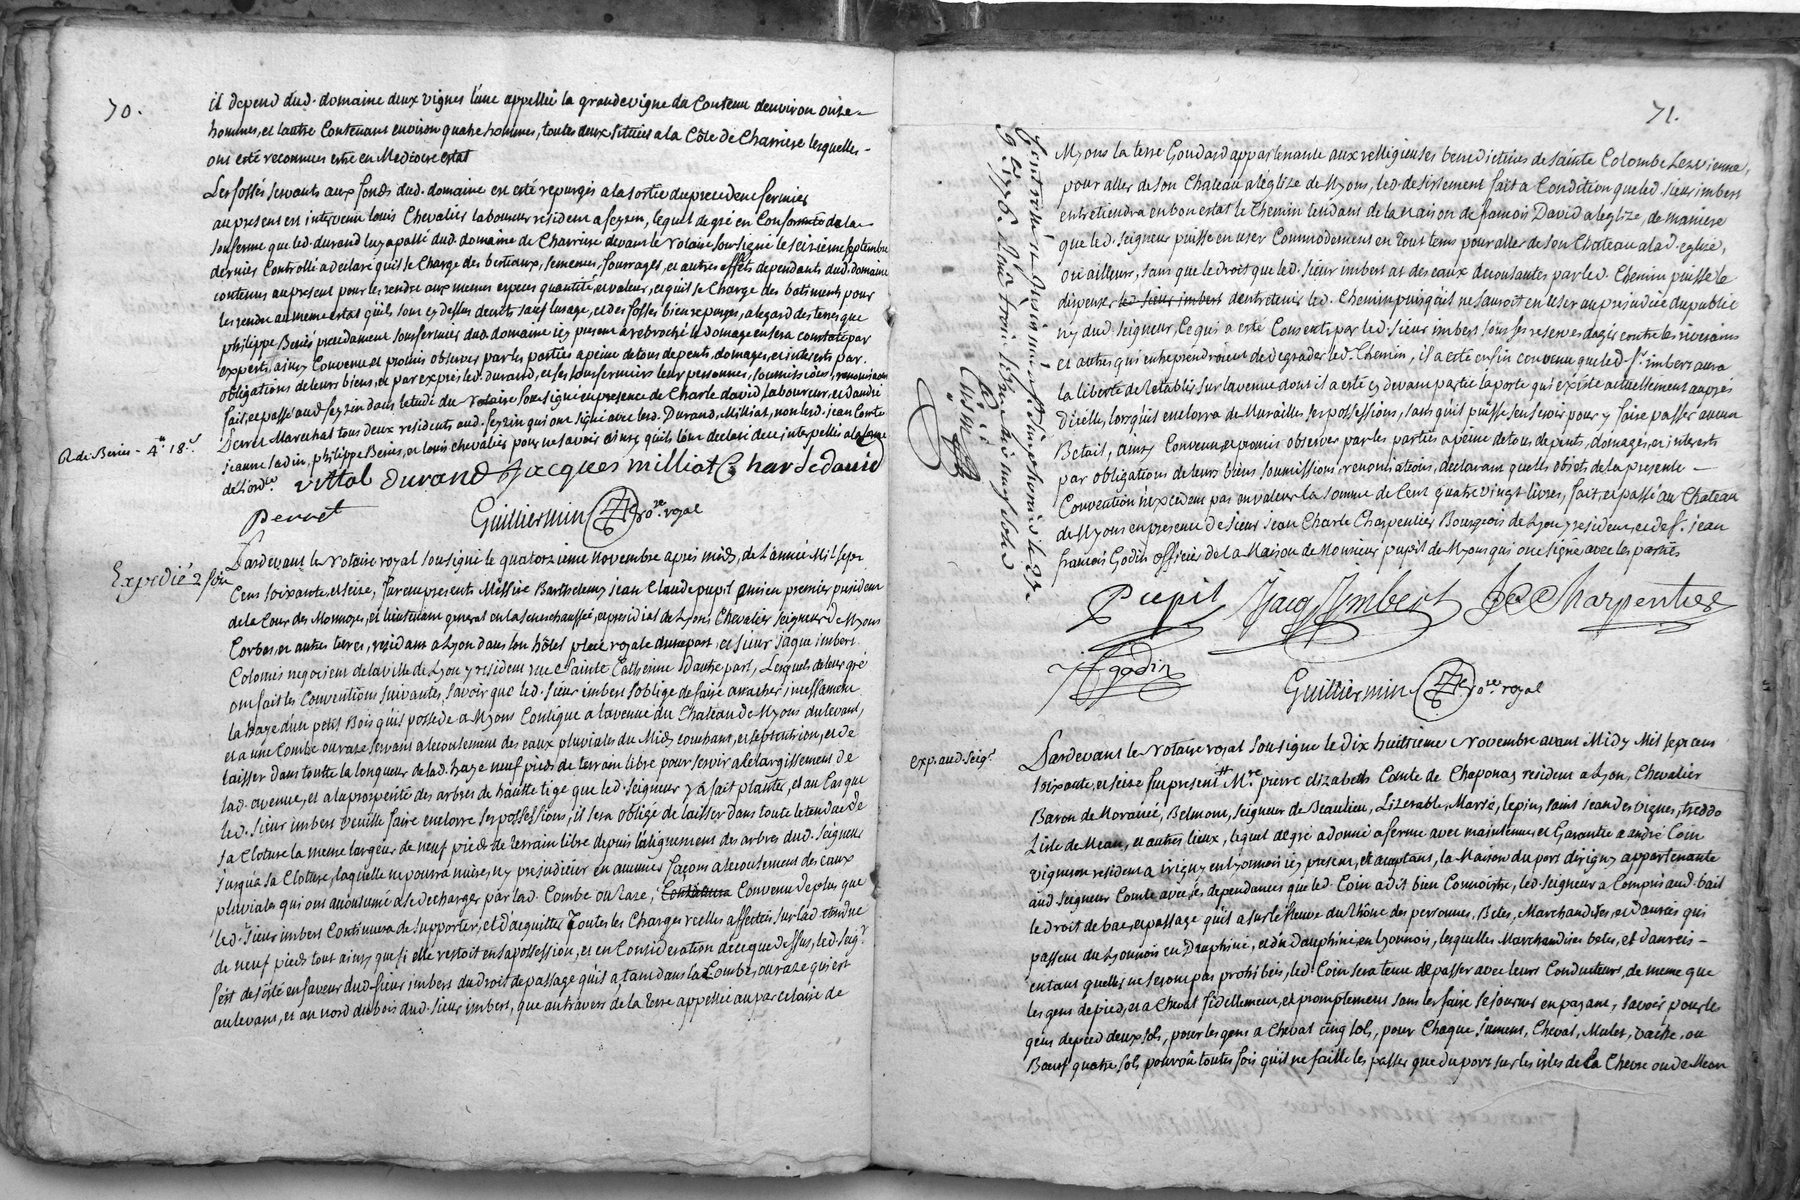 70.
il depend dud. domaine deux vignes l'une appellée la grande vigne da Contenu denviron onze
hommes, et lautre Contenant environ quatre hommes, toutes deux situées a la Côte de Charriere lesquelles
ont esté reconnues estre en Mediocre estat
Les fossés servants aux fonds dud. domaine ont esté repurgés a la sortie du precedent fermier
au present est intervenu louis Chevalier laboureur résident a feyzin, lequel de gré en Conformité de la
sousferme que led. durand luy a passé dud. domaine de Charriere devant le Notaire soussigné le seizieme septembre
dernier Controllé a declaré qu'il se Charge des bestiaux, semences, fourrages, et autres effets dependants dud. domaine
contenus au present pour les rendre aux memes especes quantité, et valeur, et qu'il se Charge des batiments pour
les rendre au meme estat qu'ils sont cy dessus decrits sauf lusage, et des fossés bien repurgés, a legard des terres que
philippe Beniés precedament sousfermier dud. domaine icy present a rebroché le domage en sera constaté par
experts, ainsy Convenu, et promis observer par les parties a peine de tous depents, domages, et interests par
obligations de leurs biens, et par exprès led. durand, et ses sousfermiers leur personnes, soumissions, renonciations
fait, et passé aud. feyzin dans létude du Notaire soussigné en presence de Charle david Laboureur, et d'andré
Perret Marechal tous deux residents aud. feyzin qui ont signé avec led. Durand, Milliat, non led. jean Comte
jeanne sadin, philippe Beniés, et louis chevalier pour ne savoir ainsy qu'ils l'ont declaré de ce interpellés a la forme
de l'ord.ce
R. de Beniés - 4 18
vittal durand Jacques milliat Charle david
Perret Guilliermin No.re royal
Expedié 2 fois
Pardevant le Notaire royal soussigné le quatorzieme novembre après midy, de l'année Mil sept
Cent soixante, et seize, furent presents Messire Barthelemy jean Claude pupil ancien premier president
de la Cour des Monnoyes, et lieutenant general en la senechaussée, et presidial de Lyon, Chevalier seigneur de Myons
Corbas, et autre terres, residant a Lyon dans son hôtel place royale d'une part, et sieur jaque imbert
Colomés negocient de la ville de Lyon y resident rue Sainte Catherine d'autre part, Lesquels de leur gré
ont fait les Conventions suivantes, savoir que led. sieur imbert s'oblige de faire arracher incessament
la haye d'un petit Bois qu'il possede a Myons Contigue a l'avenue du Chateau de Myons du levant,
et a une Combe ou raze servant a lecoulement des eaux pluviales du Midy couchant, et septentrion, et de
laisser dans toutte la longueur de lad. haye neuf pieds de terrain libre pour servir a lelargissement de
lad. avenue, et a la prosperité des arbres de hautte tige que led. Seigneur y a fait planter, et au Cas que
led. sieur imbert veuille faire enclorre ses possessions, il sera obligé de laisser dans toute letendue de
sa Cloture la meme largeur de neuf pieds de terrain libre depuis l'alignement des arbres dud. Seigneur
jusqu'a sa Cloture, laquelle ne pourra nuire, ny prejudicier en aucunes façons a lecoulement des eaux
pluviales qui ont acoutumé a se decharger par lad. Combe ou raze, Convenu de plus que
led. sieur imbert Continuera de supporter, et d'acquitter toutes les Charges reelles affectées sur lad. etendue
de neuf pieds tout ainsy que si elle restoit en sa possession, et en Consideration de ce que dessus, led. seig.r
s'est desisté en faveur dud. sieur imbert du droit de passage qu'il a tant dans la Combe, ou raze qui est
au levant, et au nord du bois dud. sieur imbert, que au travers de la terre appellée au parcelaire de
71.
Myons la terre Goudard appartenante aux relligieuses benedictines de sainte Colombe Les vienne,
pour aller de son Chateau a leglize de Myons, led. desistement fait a Condition que led. sieur imbert
entretiendra en bon estat le Chemin tendant de la maison de francois David a leglize, de maniere
que led. seigneur puisse en user Commodement en tous tems pour aller de son Chateau a lad. eglise,
ou ailleurs, sans que le droit que led. sieur imbert at des eaux decoulantes par led. Chemin puisse le
dispenser led sieur imbert d'entretenir led. Chemin puisqu'il ne sauroit en user au prejudice du public
ny dud. seigneur, Ce qui a esté Consenti par led. sieur imbert sous ses reserves d'agir contre les riverains
et autres qui entreprendroient de degrader led. Chemin, il a esté enfin convenu que led. s.r imbert aura
la liberté de retablir sur lavenue dont il a esté cy devant parlé la porte qui existe actuellement auprès
D'icelle, lorsqu'il enclorra de Murailles ses possessions, sans qu'il puisse s'en servir pour y faire passer aucun
Betail, ainsy Convenu, et promis observer par les parties a peine de tous depents, domages, et interests
par obligations de leurs biens soumissions, renonciations, declarant que les objets de la presente
Convention n'excedent pas en valeur la somme de Cent quatre vingt livres, fait, et passé au Chateau
de Myons en presence de sieur jean Charle Charpentier Bourgeois de Lyon y resident, et de s.r jean
francois Godin officier de la Maison de Monsieur pupil de Myons qui ont signé avec les parties
Pupil Jacq Imbert J C Charpentier
Jf godin Guilliermin No.re royal
exp. aud. Seig.r
Pardevant le Notaire royal soussigné le dix huittieme Novembre avant Midy Mil sept cent
soixante, et seize fut present M.re pierre elizabeth Comte de Chaponay resident a Lyon, Chevalier
Baron de Morancé, Belmont, seigneur de Beaulieu, Lizerable, Marzé, lepin, saint jean des vignes, treddo
L'isle de Mean, et autres lieux, lequel de gré a donné a ferme avec maintenue, et Garantie a andré Coin
vigneron resident a irigny en lyonnois icy present, et acceptant, la Maison du port d'irigny appartenante
aud. seigneur Comte avec ses dependances que led. Coin a dit bien Connoistre, led. seigneur a Compris aud. bail
le droit de bac, et passage qu'il a sur le fleuve du Rhône des personnes, Betes, Marchandises, et danrées qui
passent du Lyonnois en Dauphiné, et du Dauphiné en Lyonnois, lesquelles Marchandises betes, et danrées
entant quelles ne seront pas prohibées, led. Coin sera tenu de passer avec leurs Conducteurs, de meme que
les gens de pied, et a Cheval fidellement, et promptement sans les faire sejourner en payant, savoir pour les
gens de pied deux sols, pour les gens a Cheval cinq sols, pour Chaque jument, Cheval, Mulet, vache, ou
Boeuf quatre sols pourvû toutes fois qu'il ne faille les passer que du port sur les isles de la Chevre ou de Mean